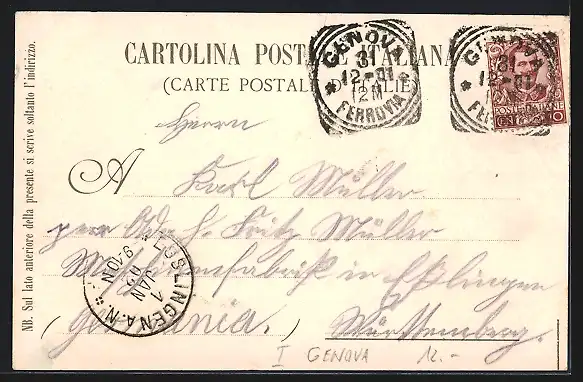 CARTOLINA POSTALE ITALIANA
(CARTE POSTALE D'ITALIE)
GENOVA
31
12-01
12M
FERROVIA
GENOVA
31
12-01
FERROVIA
POSTE ITALIANE
CENT. 10
NB. Sul lato anteriore della presente si scrive soltanto l'indirizzo.
Herrn
A Karl Müller
per Adr. H. Fritz Müller
Maschinenfabrik in Eßlingen
(Germania.) Württemberg.
ESSLINGEN A.N.
1
JAN
02
9-10N
I GENOVA 12.-